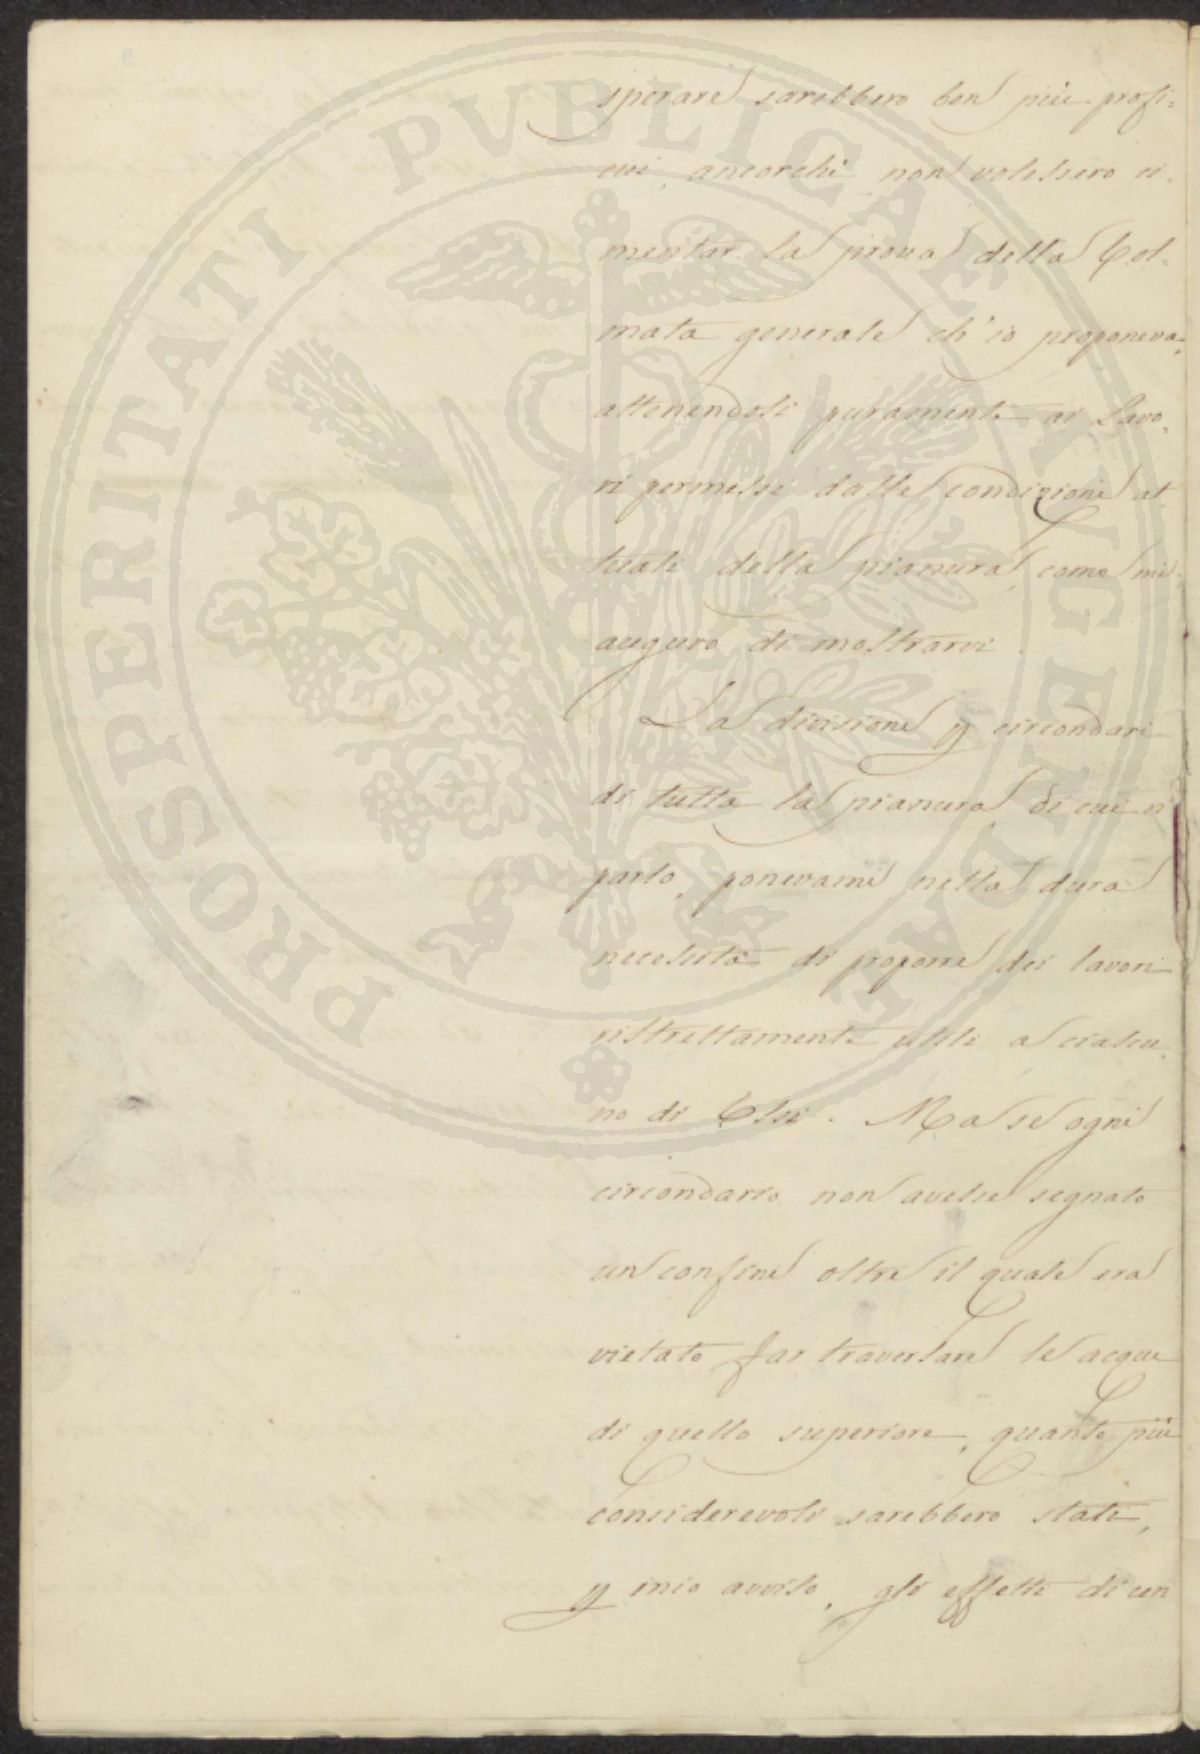 sperare sarebbero ben più profi=
cui, ancorché non volessero ci=
mentar la prova della Col=
mata generale ch'io proponeva,
attenendosi puramente ai lavo=
ri permessi dalle condizioni at=
tuali della pianura, come mi
auguro di mostrarvi.
La divisione p circondari
di tutta la pianura di cui vi
parlo, ponevami nella dura
necessità di proporre dei lavori
ristrettamente utili a ciascu=
no di Essi. Ma se ogni
circondario non avesse segnato
un confine oltre il quale era
vietato far traversare le acque
di quello superiore, quanto più
considerevoli sarebbero stati,
p mio avviso, gli effetti di un
PROSPERITATI PUBLICAE